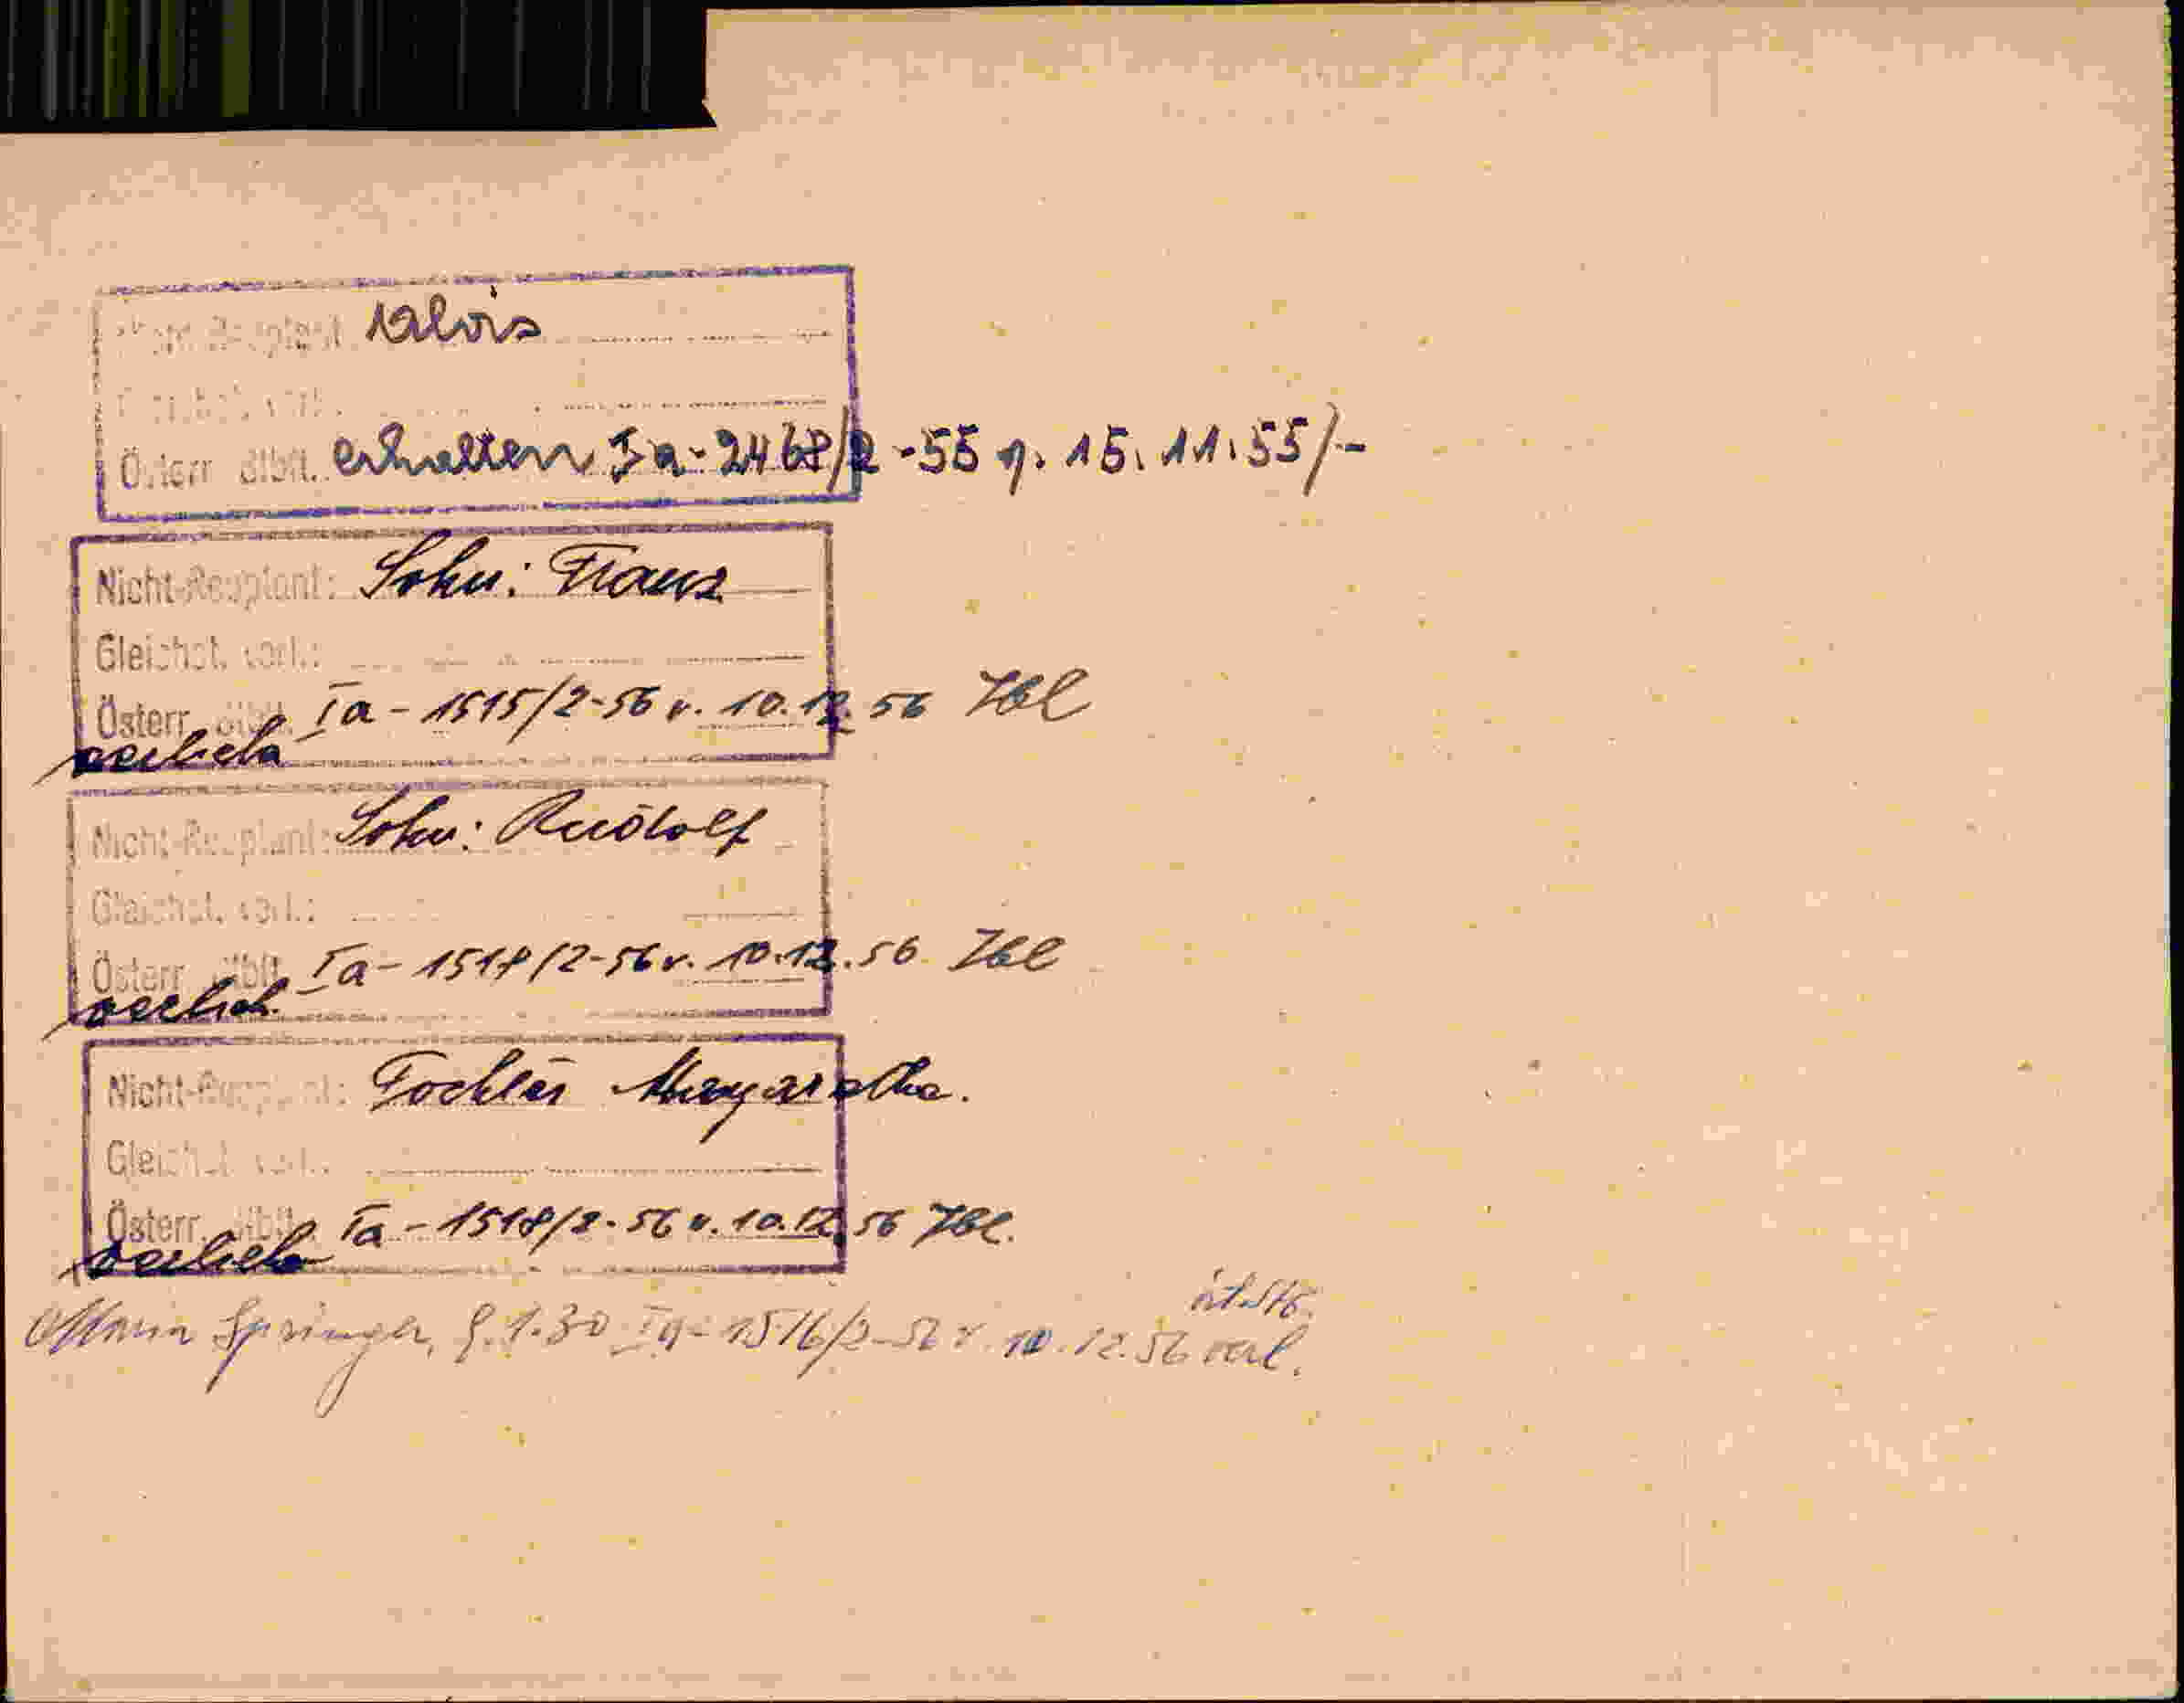 Nicht-Reoptant: Alois
Gleichst. vorl.:
Österr. stbft. erhalten Ia-2468/2-55 v. 15.11.55/-
Nicht-Reoptant: Sohn: Franz
Gleichst. vorl.:
Österr. stbft. Ia-1515/2-56 v. 10.12.56
verlieh
Nicht-Reoptant: Sohn: Rudolf
Gleichst. vorl.:
Österr. stbft. Ia-1517/2-56 v. 10.12.56
verlieh.
Nicht-Reoptant: Tochter Margaretha.
Gleichst. vorl.:
Österr. stbft. Ia-1518/2-56 v. 10.12.56
verlieh
Maria Springer, 9.1.30 Ia-1516/2-56 v. 10.12.56 verl.